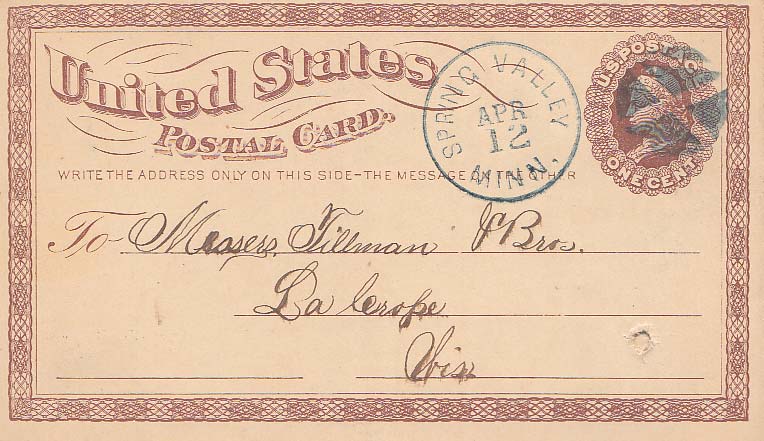 United States
Postal Card.
WRITE THE ADDRESS ONLY ON THIS SIDE-THE MESSAGE ON THE OTHER
SPRING VALLEY
APR
12
MINN.
U.S. POSTAGE
ONE CENT
To- Messers. Tillman & Bros.
La Crosse
Wis